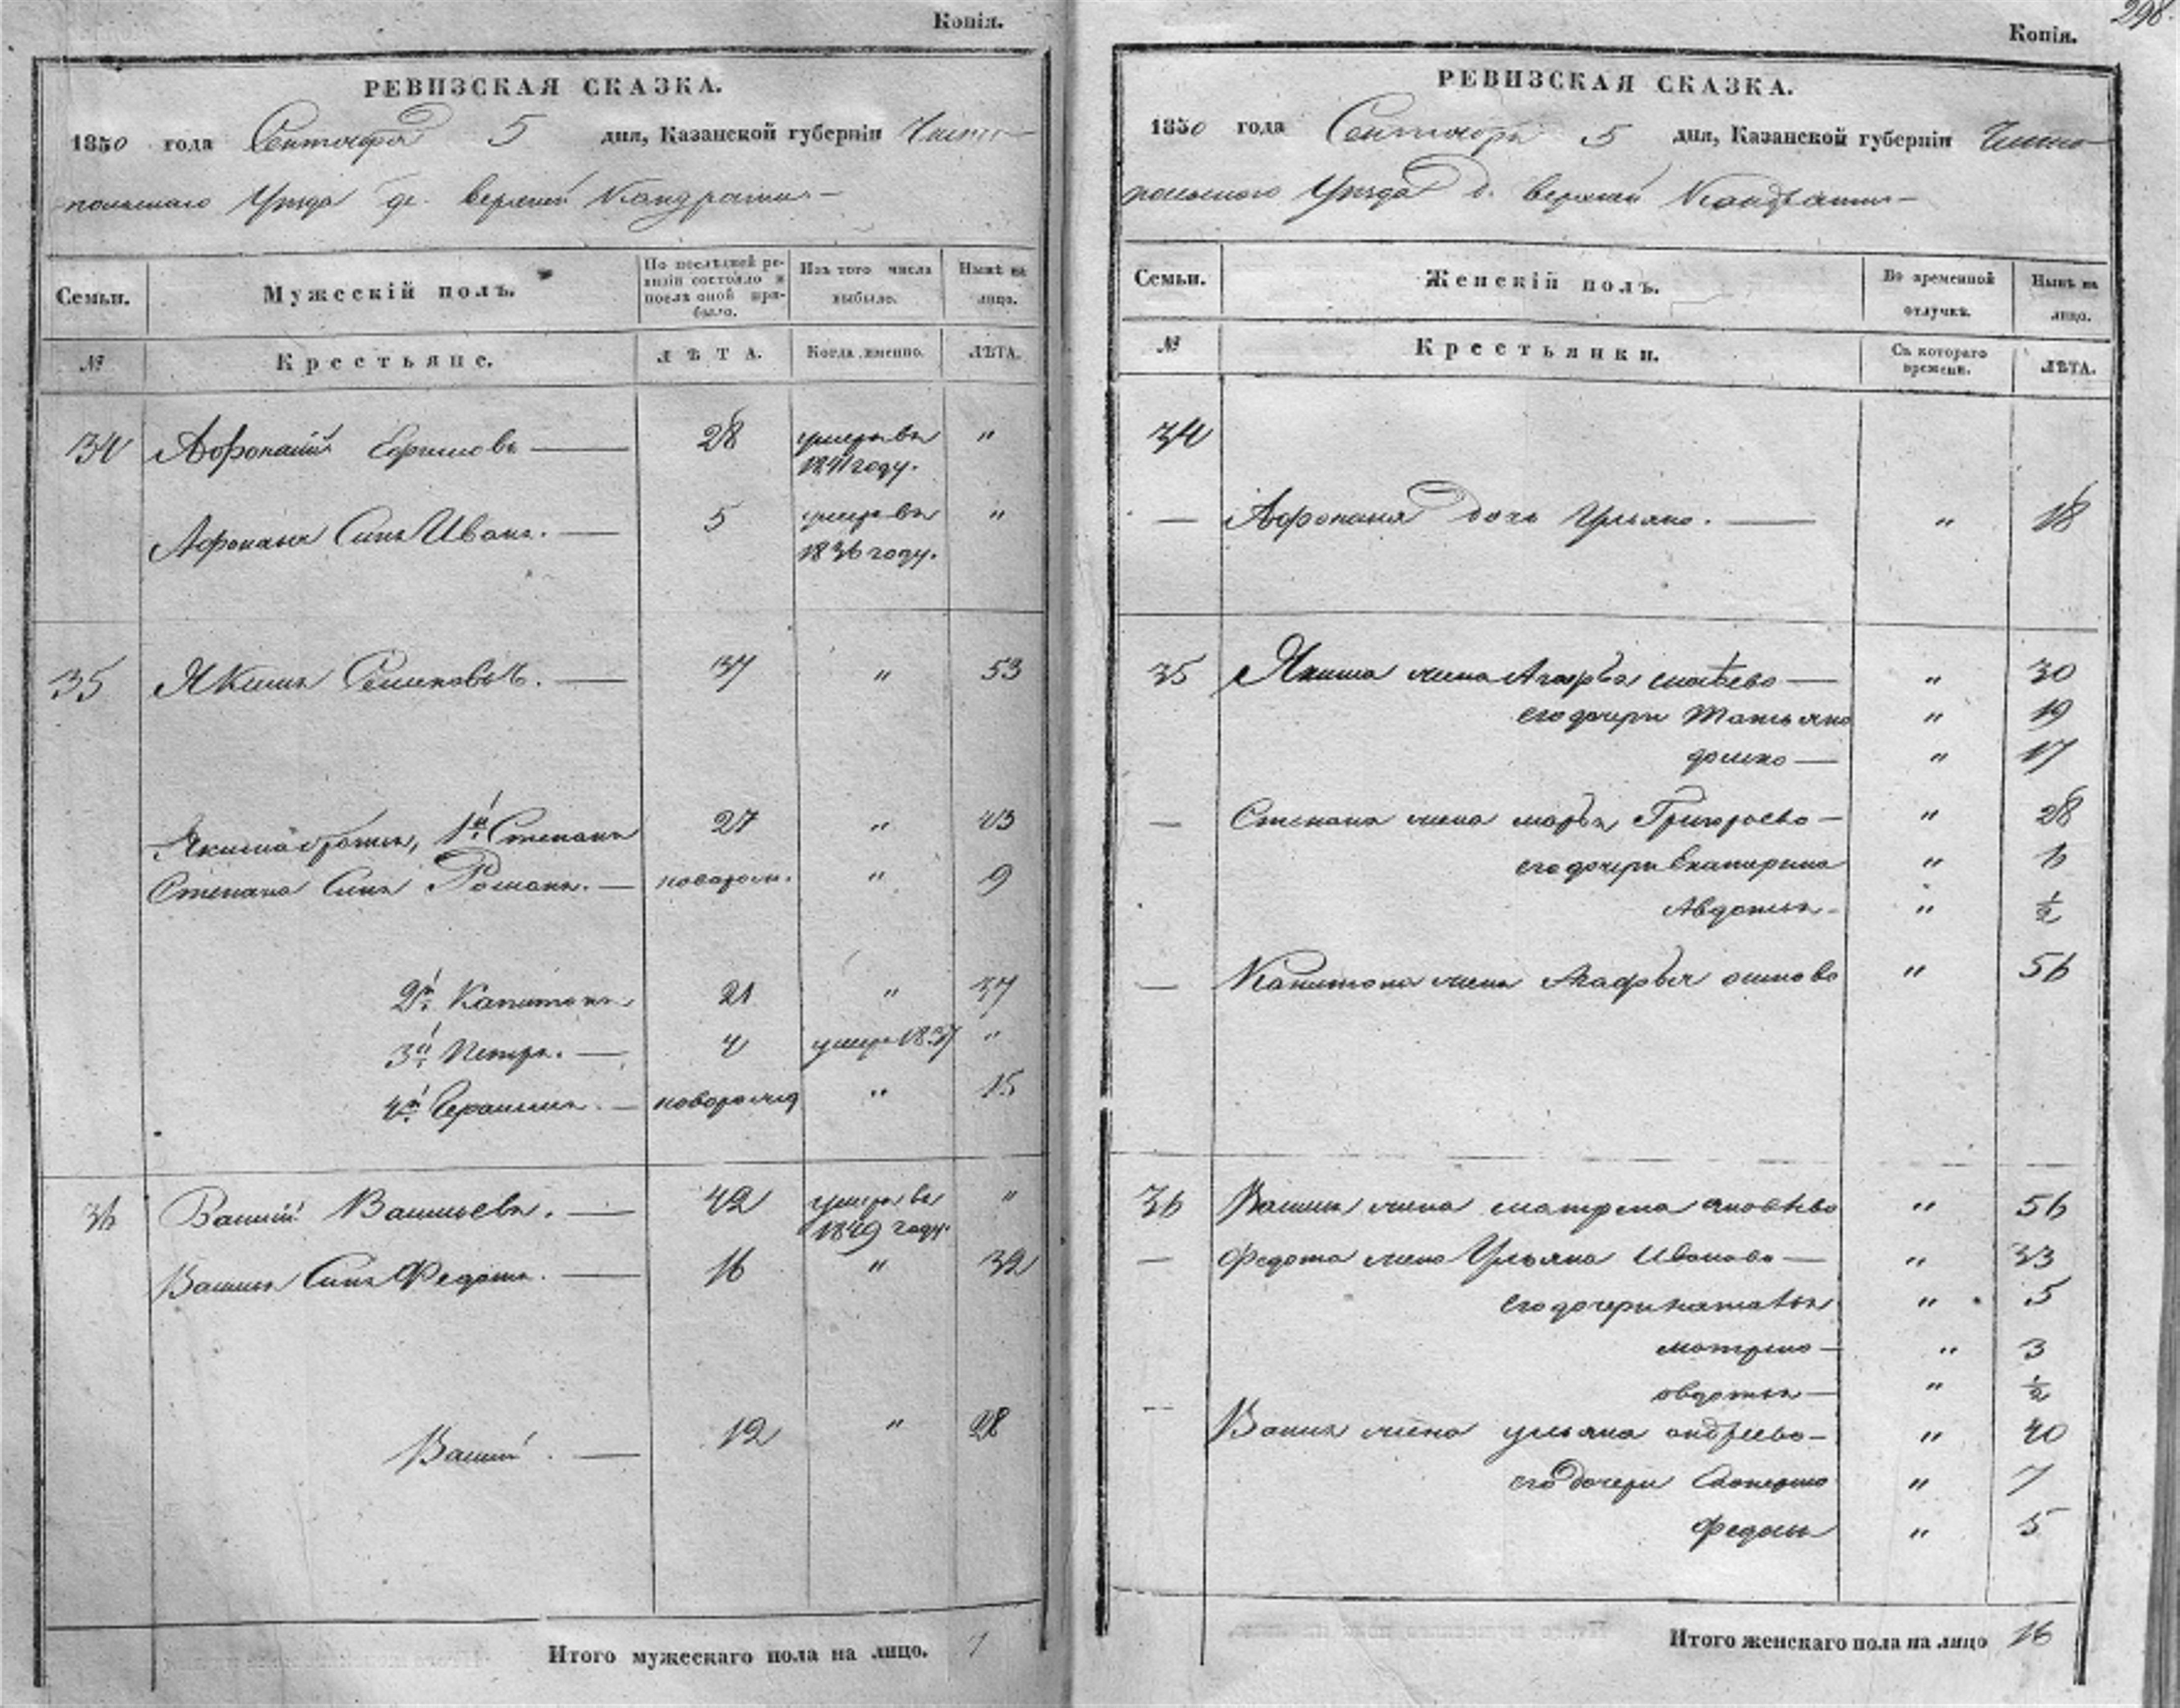 Копія.
РЕВИЗСКАЯ СКАЗКА.
1850 года Сентября 5 дня, Казанской губерніи Чисто
польскаго Уѣзда де. верхней Кандраты
Семьи. Мужескій полъ. По послѣдней ревизіи состояло и послѣ оной прибыло. Изъ того числа выбыло. Нынѣ на лицо.
№ Крестьяне. ЛѢТА. Когда именно. ЛѢТА.
34 Афонасій Ефимовъ — 28 умеръ въ 1841 году. "
Афонасья Сынъ Иванъ. — 5 умеръ въ 1836 году. "
35 Якимъ Семеновъ. — 37 " 53
Якима братья, 1й Степанъ 27 " 43
Степана Сынъ Романъ. — новорож. " 9
2й Капитонъ 21 " 37
3й Петръ. — 4 умеръ 1837 "
4й Герасимъ. — новорожд " 15
36 Василий Васильевъ. — 42 умеръ въ 1849 году. "
Василья Сынъ Федотъ. — 16 " 32
Василий. — 12 " 28
Итого мужескаго пола на лицо. 7
298
Копія.
РЕВИЗСКАЯ СКАЗКА.
1850 года Сентября 5 дня, Казанской губерніи Чисто
польскаго Уѣзда д. верхней Кандраты
Семьи. Женскій полъ. Во временной отлучкѣ. Нынѣ на лицо.
№ Крестьянки. Съ котораго времени. ЛѢТА.
34
— Афонасья дочь Ульяна. — " 18
35 Якима жена Агафья — " 30
его дочери Татьяна " 19
домна — " 17
— Степана жена марья Григорьева — " 28
его дочери Екатерина " 6
Авдотья — " ½
— Капитона жена Агафья осипова " 56
36 Василья жена матрена яковлева " 56
— Федота жена Ульяна Иванова — " 33
его дочери наталья " 5
матрена — " 3
овдотья — " ½
— Василья жена ульяна андреева — " 40
его дочери " 7
Федосья " 5
Итого женскаго пола на лицо 16